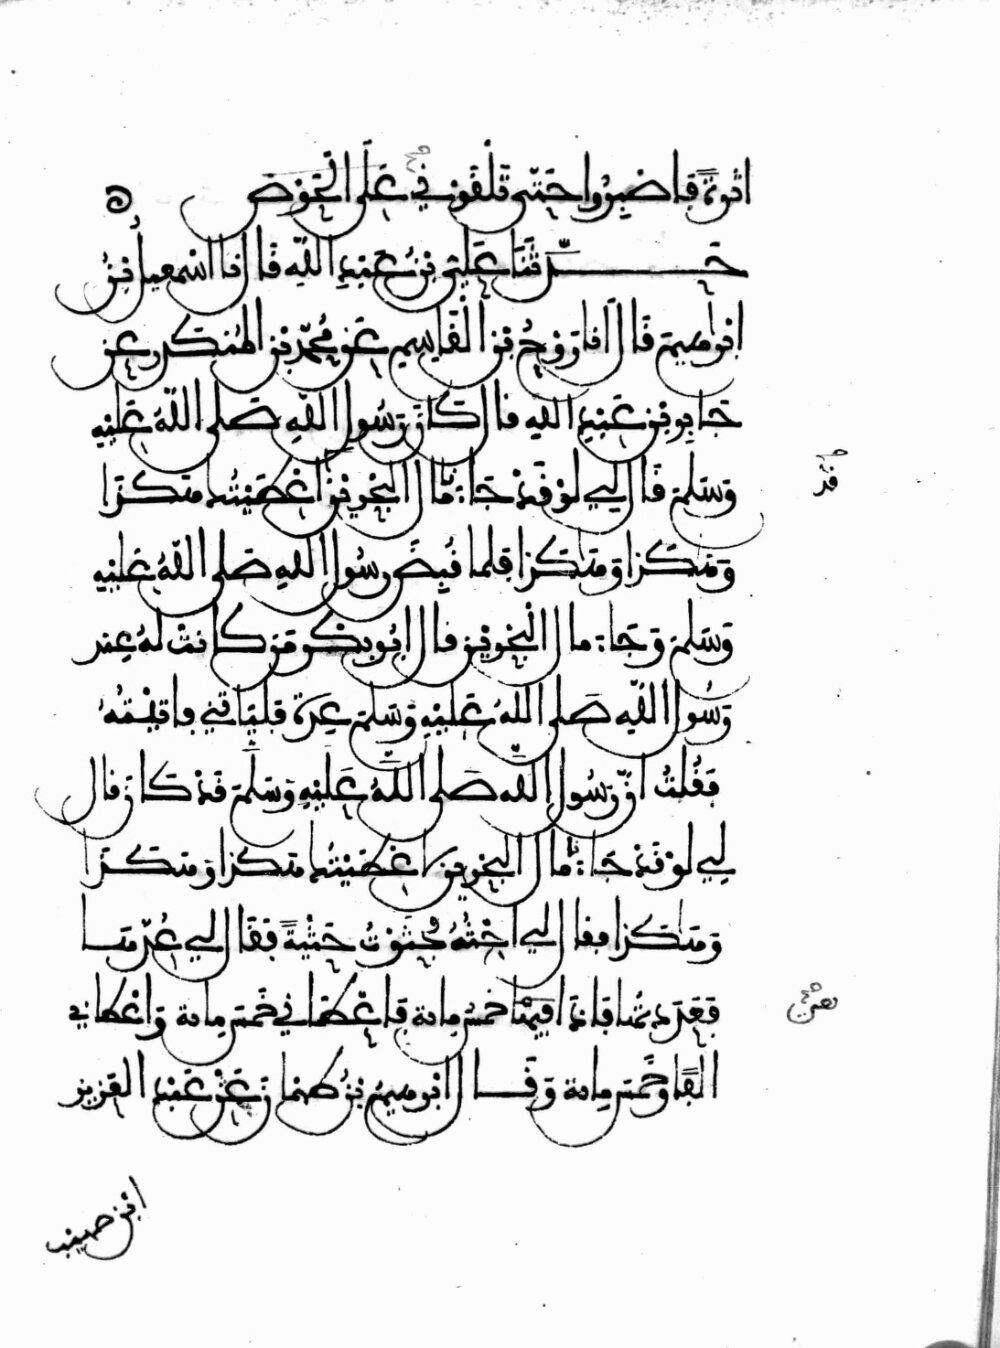 اثرة فاصبروا حتى تلقوني على الحوض ه
حدثنا علي بن عبد الله قال نا اسمعيل بن
ابراهيم قال انا روح بن القاسم عن محمد بن المنكدر عن
جابر بن عبد الله قال كان رسول الله صلى الله عليه
وسلم قال لي لو قد جاء مال البحرين اعطيتك هكذا
قد
وهكذا وهكذا فلما قبض رسول الله صلى الله عليه
وسلم وجاء مال البحرين قال ابو بكر من كانت له عند
رسول الله صلى الله عليه وسلم عدة فلياتني فاتيته
فقلت ان رسول الله صلى الله عليه وسلم قد كان قال
لي لو قد جاء مال البحرين اعطيتك هكذا وهكذا
وهكذا فقال لي احثه فحثوت حثية فقال لي عدها
فعددتها فاذا هي خمس مائة فاعطاني خمس مائة واعطاني
الفا وخمس مائة وقال ابراهيم بن طهمان عن عبد العزيز
ابن صهيب